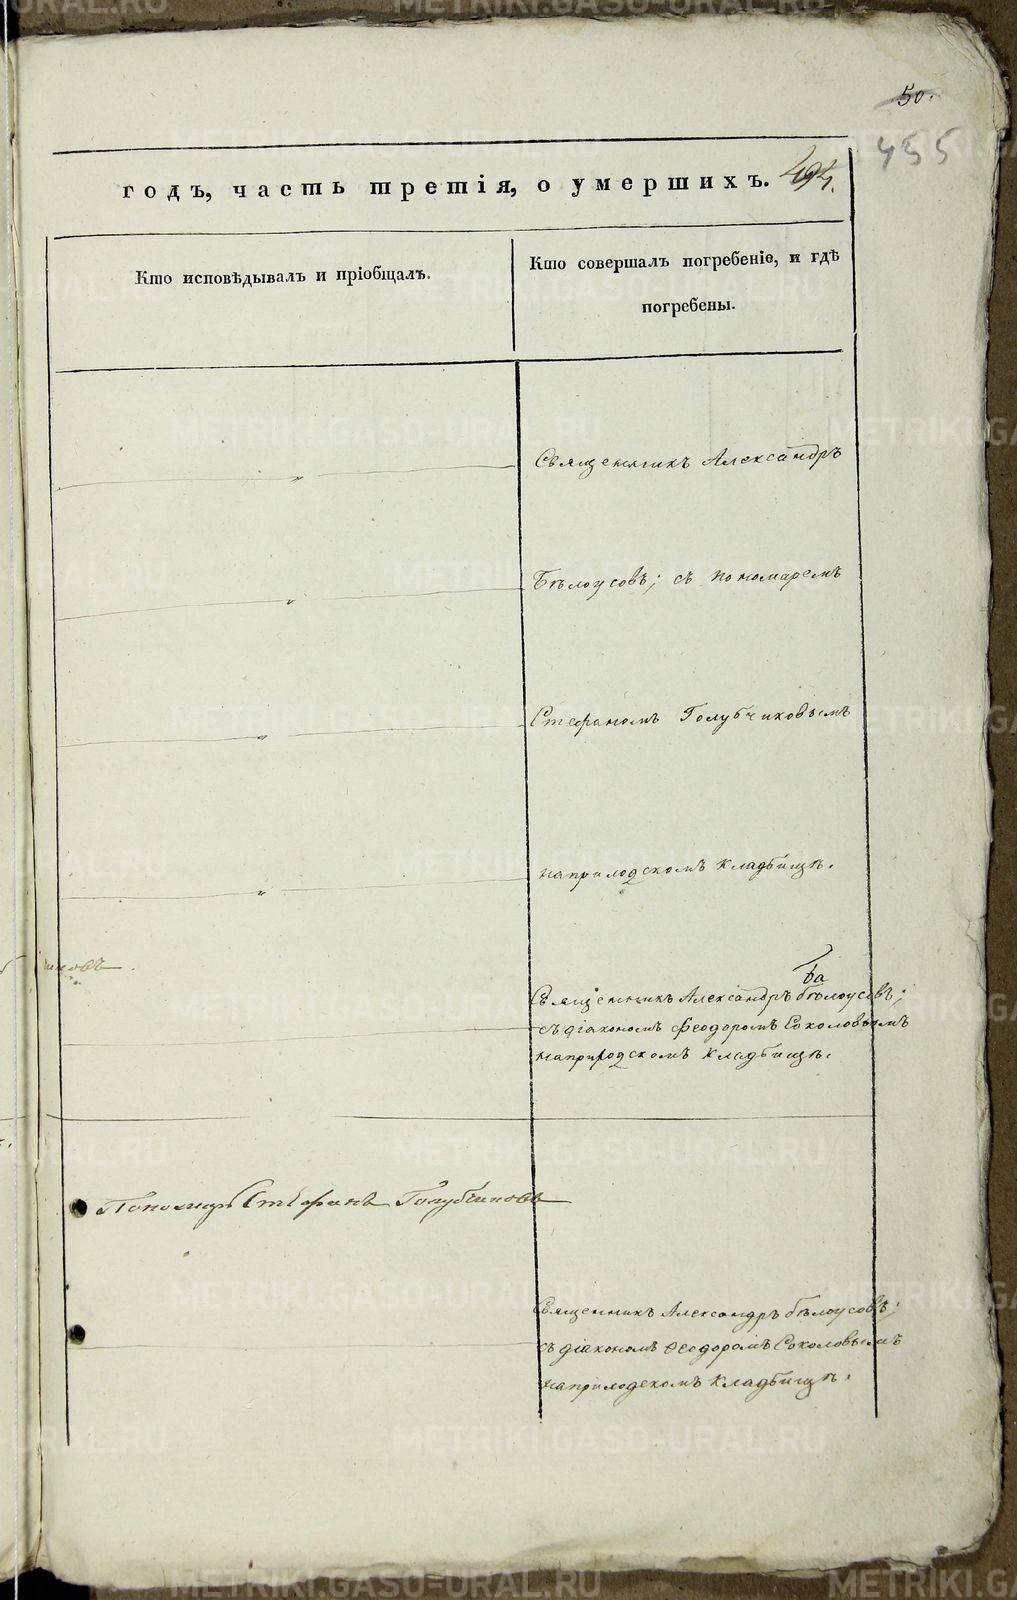 50.
455
494.
годъ, часть третія, о умершихъ.
Кто исповѣдывалъ и пріобщалъ.
Кто совершалъ погребеніе, и гдѣ
погребены.
Священникъ Александръ
Бѣлоусовъ; съ пономаремъ
Стефаномъ Голубчиковымъ
на приходскомъ кладбищѣ.
Священникъ Александръ Бѣлоусовъ;
съ діакономъ Феодоромъ Соколовымъ
на приходскомъ кладбищѣ.
Пономарь Стефанъ Голубчиковъ
Священникъ Александръ Бѣлоусовъ;
съ діакономъ Феодоромъ Соколовымъ
на приходскомъ кладбищѣ.
METRIKI.GASO-URAL.RU